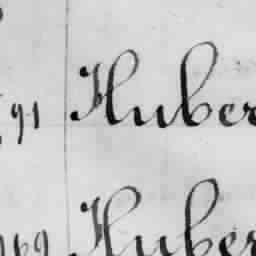 91 Huber
169 Huber